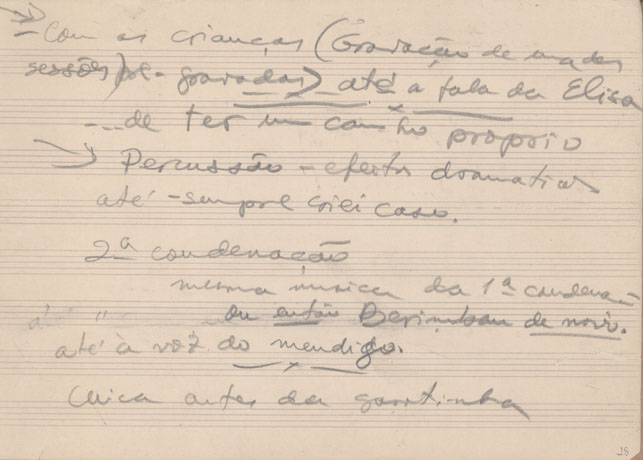 - Com as crianças (Gravação de uma das
sessões pré-gravadas) até a fala da Elisa
... de ter um caminho proprio
Percussão - efeitos dramaticos
até - sempre criei caso.
2ª condenação
mesma música da 1ª condenação
até " ou então Berimbau de novo.
até à voz do mendigo.
Cuica antes da garotinha
28